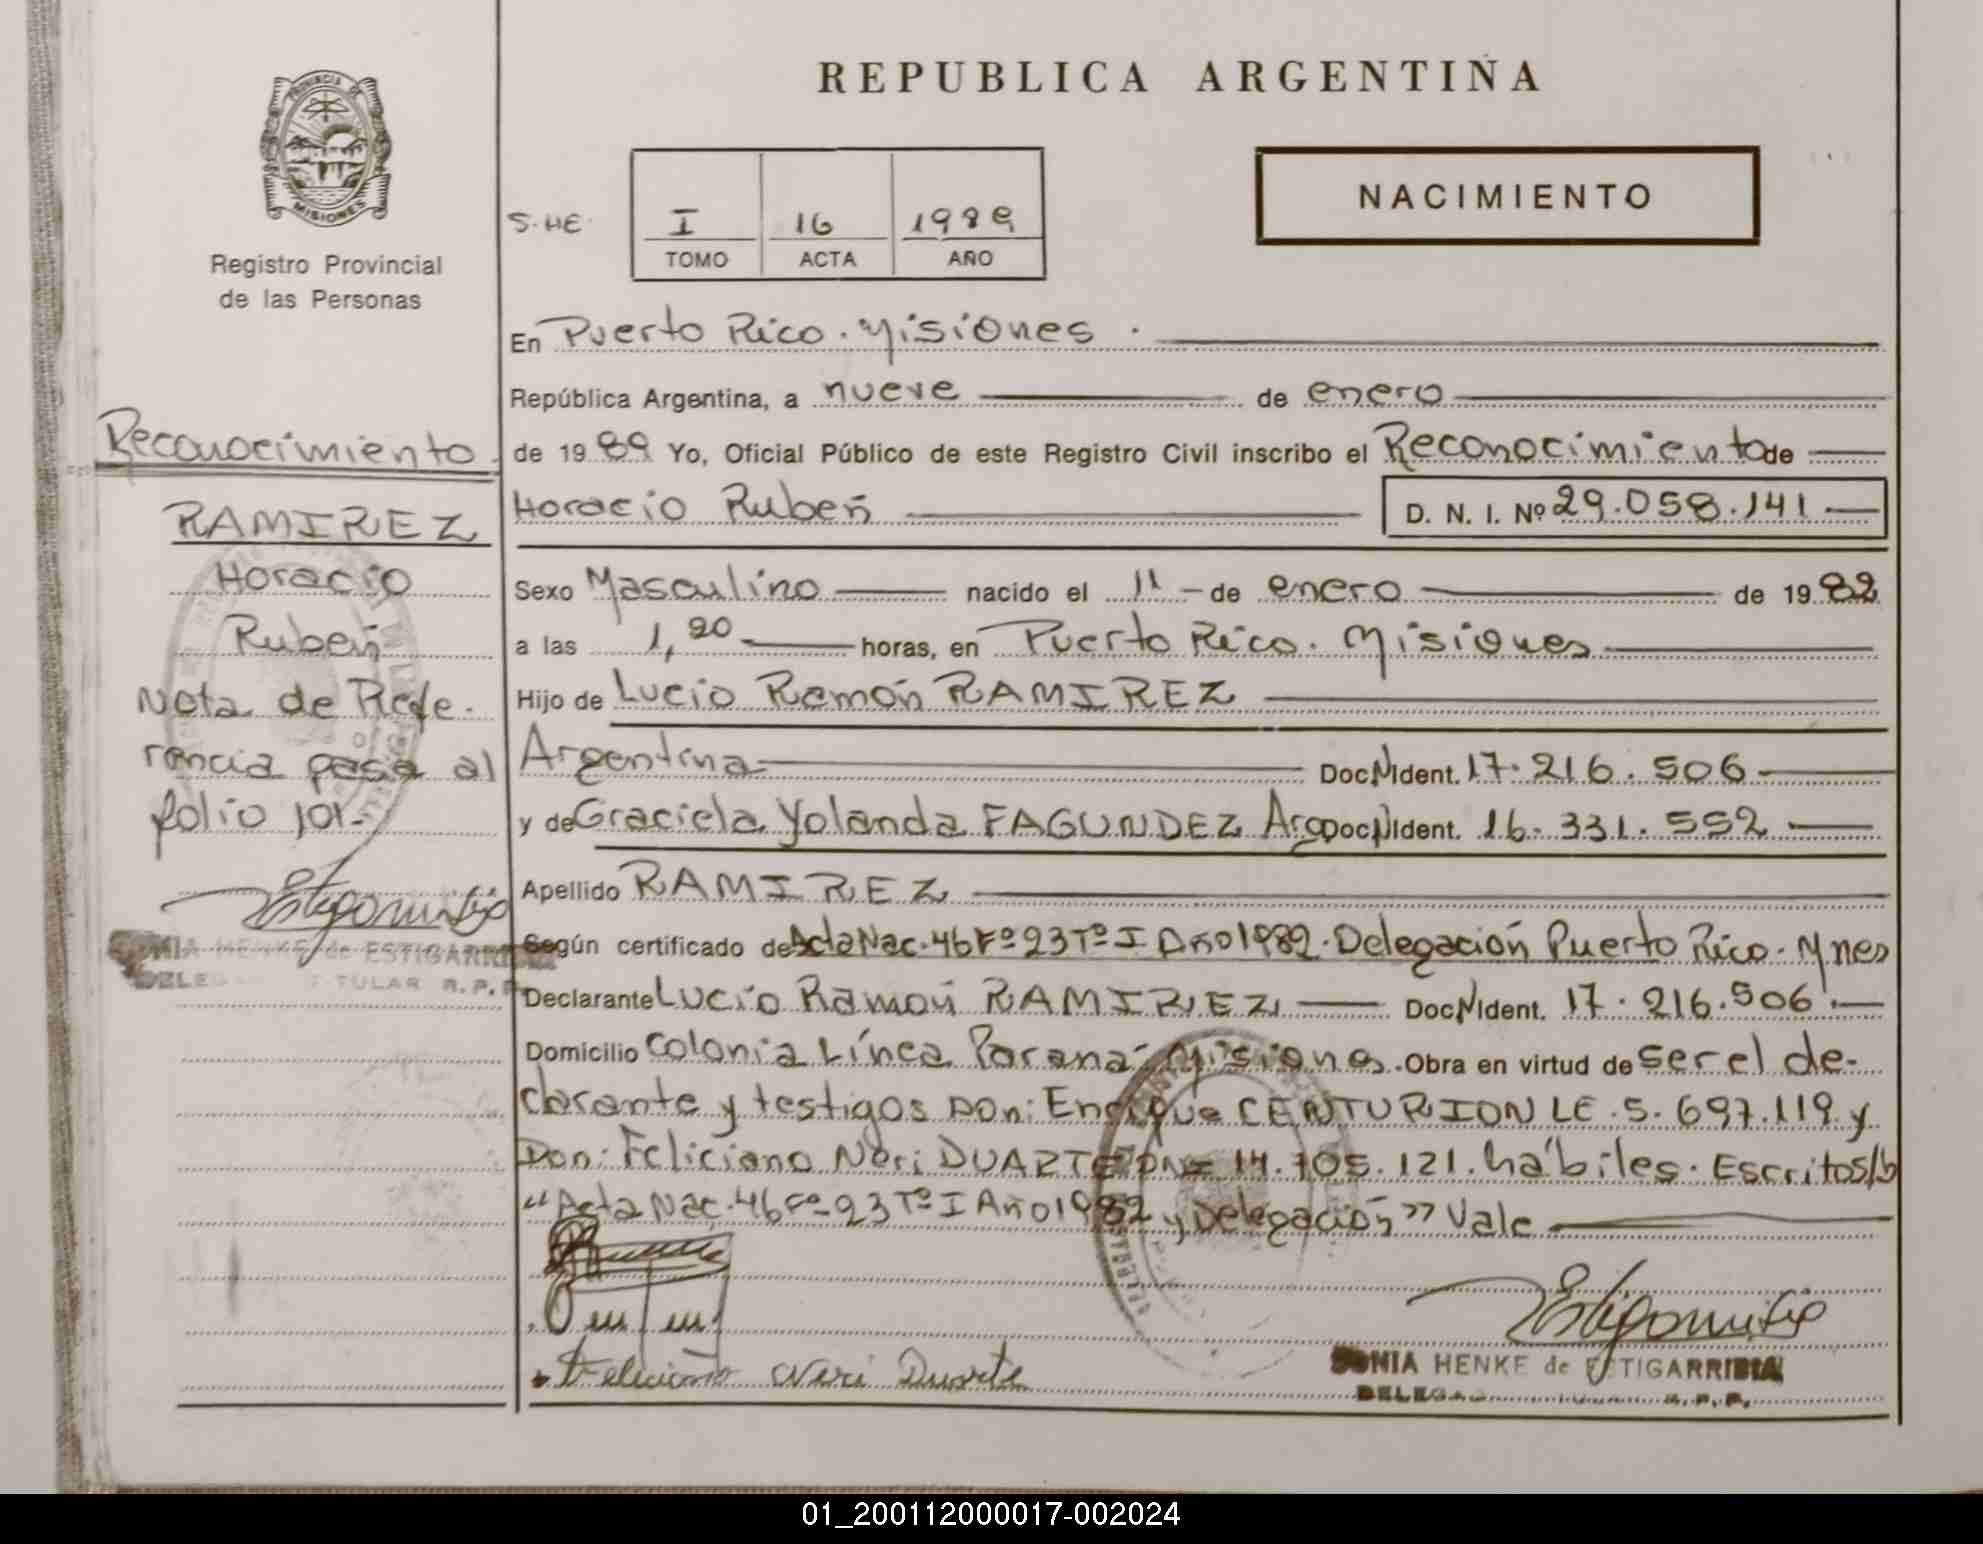 REPUBLICA ARGENTINA
PROVINCIA DE
MISIONES
Registro Provincial
de las Personas
S. HE.
I 16 1989
TOMO ACTA AÑO
NACIMIENTO
En Puerto Rico. Misiones.
República Argentina, a nueve de enero
de 1989 Yo, Oficial Público de este Registro Civil inscribo el Reconocimiento de
Horacio Rubén D. N. I. Nº 29.058.141
Sexo Masculino nacido el 11 de enero de 1982
a las 1,20 horas, en Puerto Rico. Misiones
Hijo de Lucio Ramón RAMIREZ
Argentina Doc. N. Ident. 17.216.506
y de Graciela Yolanda FAGUNDEZ Arg. Doc. N. Ident. 16.331.552
Apellido RAMIREZ
Según certificado de Acta Nac. 46 Fº 23 Tº I Año 1982. Delegación Puerto Rico. Mnes
Declarante Lucio Ramón RAMIREZ Doc. N. Ident. 17.216.506
Domicilio Colonia Línea Paraná - Misiones. Obra en virtud de ser el de-
clarante y testigos Don: Enrique CENTURION LE. 5.697.119 y
Don: Feliciano Neri DUARTE DNI 14.105.121. hábiles. Escritos s/b
"Acta Nac. 46 Fº 23 Tº I Año 1982 y Delegación" Vale
Feliciano Neri Duarte
SONIA HENKE de ESTIGARRIBIA
Reconocimiento
RAMIREZ
Horacio
Rubén
Nota de Refe-
rencia pasa al
folio 101.
SONIA HENKE de ESTIGARRIBIA
DELEGADA TITULAR R.P.P.
01_200112000017-002024